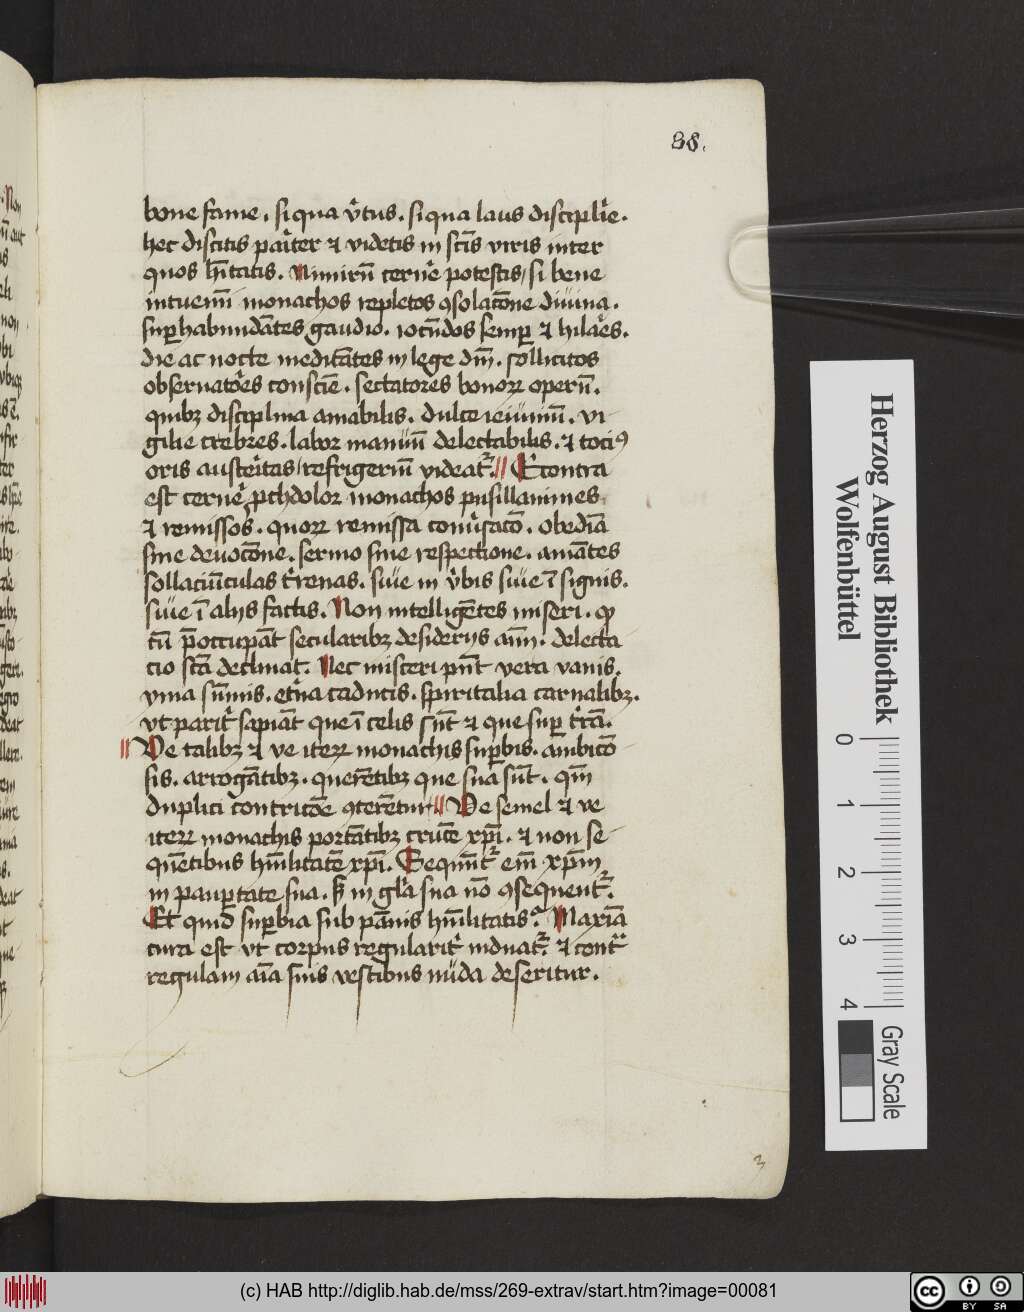 38.
bone fame. si qua v̓tus. si qua laus discipli̓e.
hec discitis pari̓ter ⁊ videtis in sc̄is viris inter
quos h̄itatis. Nimirū cerne̓ potestis / si bene
intuemī monachos repletos ꝯsolac̄one diuina.
suꝑhabundātes gaudio. iocūdos semꝑ ⁊ hilar̓es.
die ac nocte meditātes in lege dn̄i. sollicitos
obseruato̓es consciē. sectatores bonoꝝ operū.
quibꝫ disciplina amabilis. dulce ieiuniū. vi
gilie crebres. labor manuū delectabilis. ⁊ tociꝰ
oris austeri̓tas / refrigeriū videat᷑. // Econtra
est cerne̓ ꝓchdolor monachos pusillanimes
⁊ remissos. quoꝝ remissa conu̓sacō. obediā
sine deuoc̄one. sermo sine respectione. amātes
sollaciūculas t̓renas. siue in v̓bis siue ī signis.
siue ī alijs factis. Non intelligētes miseri. ꝙ
cū p̄occupāt secularibꝫ desiderijs aīm. delecta
cio sctā declinat. Nec misceri pn̄t vera vanis.
vina sūmis. et̓na caducis. spiritalia carnalibꝫ.
vt parit̓ sapiāt que ī celis sūt ⁊ que suꝑ t̓rā.
// Ve talibꝫ ⁊ ve iteꝝ monachis suꝑbis. ambicō
sis. arrogātibꝫ. querētibꝫ que sua sūt. qm̄
duplici contricōe ꝯterētur // Ve semel ⁊ ve
iteꝝ monachis portātibꝫ crucē xp̄i. ⁊ non se
quētibus hūilitatē xp̄i. Sequūt᷑ em̄ xp̄m
in pauꝑtate sua. sꝫ in gl̓ia sua nō ꝯsequent᷑.
Et quid suꝑbia sub pānis hūilitatis? Maxīa
cura est vt corpus regularit̓ induat᷑. ⁊ cont᷑
regulam aīa suis vestibus nuda deseritur.
3
Herzog August Bibliothek
Wolfenbüttel
0 1 2 3 4
Gray Scale
(c) HAB http://diglib.hab.de/mss/269-extrav/start.htm?image=00081
cc BY SA